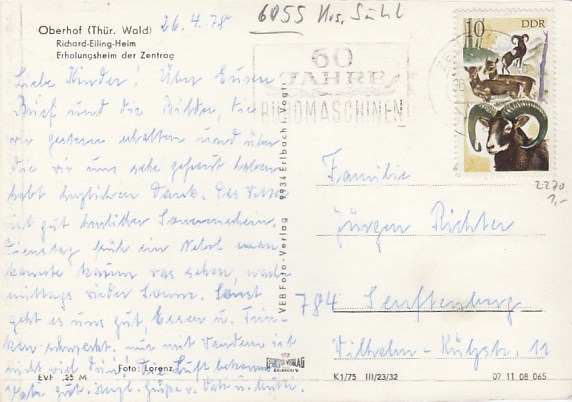 26.4.78
6055 Krs. Suhl
Oberhof (Thür. Wald)
Richard-Eiling-Heim
Erholungsheim der Zentrag
60
JAHRE
BÜROMASCHINEN
10 DDR
Liebe Kinder! Über Euren
Brief und die Bilder, die
wir gestern erhalten und über
die wir uns sehr gefreut haben
habt herzlichen Dank. Das Wetter
ist gut herrlicher Sonnenschein.
Dienstag früh ein Nebel man
konnte kaum was sehen nach
mittags wieder Sonne. Sonst
geht es uns gut, Essen u. Trin-
ken schmeckt, nur mit Wandern ist
nicht viel drin! Die Luft bekommt
Vati gut. Grüße v. Vati u. Mutti.
2270
1,-
Familie
Jürgen Richter
784 Senftenberg
Wilhelm-Külzstr. 11
VEB Foto-Verlag 9934 Erlbach i. Vogtl.
EVP ,25 M
Foto: Lorenz
VEB
FOTO VERLAG
ERLBACH
K1/75 III/23/32
07 11 08 065